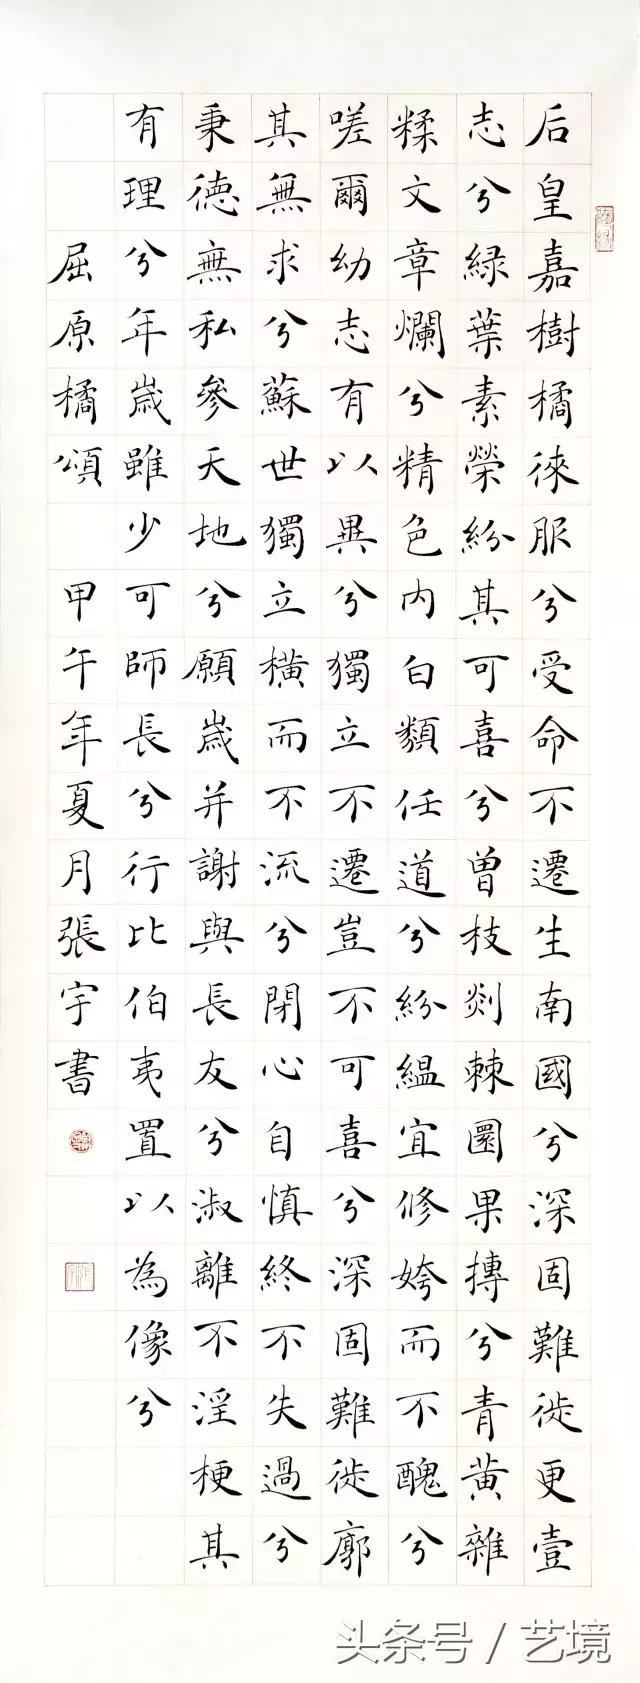 后皇嘉樹橘徠服兮受命不遷生南國兮深固難徙更壹
志兮緑葉素榮紛其可喜兮曾枝剡棘圜果摶兮青黃雜
糅文章爛兮精色内白類任道兮紛緼宜修姱而不醜兮
嗟爾幼志有以異兮獨立不遷豈不可喜兮深固難徙廓
其無求兮蘇世獨立橫而不流兮閉心自慎終不失過兮
秉德無私參天地兮願歲并謝與長友兮淑離不淫梗其
有理兮年歲雖少可師長兮行比伯夷置以為像兮
屈原橘頌 甲午年夏月張宇書
头条号 / 艺境